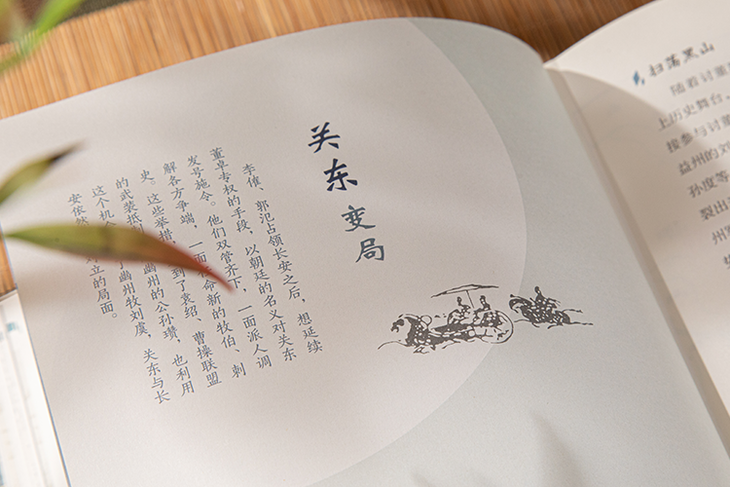 关东
变局
李傕、郭汜占领长安之后，想延续
董卓专权的手段，以朝廷的名义对关东
发号施令。他们双管齐下，一面派人调
解各方争端，一面命新的牧伯、刺
史。这些举措，到了袁绍、曹操联盟
的武装抵幽州的公孙瓒，也利用
这个机了幽州牧刘虞，关东与长
安依然立的局面。
扫荡黑山
随着讨董
上历史舞台、
接参与讨
益州的刘
孙度等
裂出
州
如